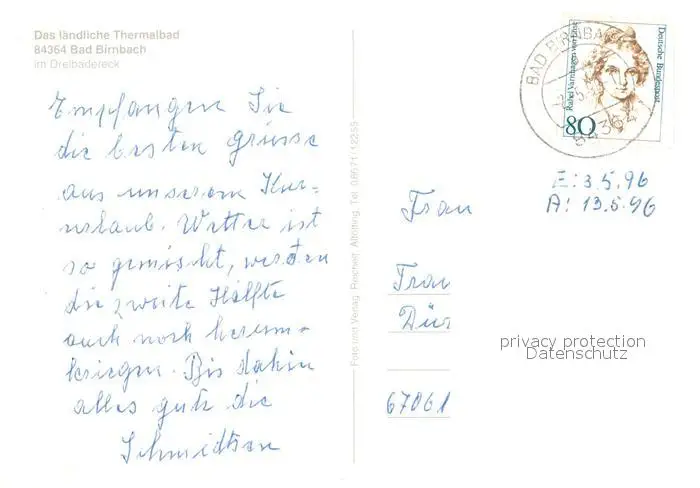 Das ländliche Thermalbad
84364 Bad Birnbach
im Dreibädereck
Empfangen Sie
die besten grüsse
aus unserem Kur=
urlaub. Wetter ist
so gemischt, werden
die zweite Hälfte
auch noch herum-
kriegen. Bis dahin
alles gute die
Foto und Verlag Reichelt, Altötting, Tel. 08671/12255
BAD BIRNBA
84364
Rahel Varnhagen von Ense
Deutsche Bundespost
80
E: 3.5.96
A: 13.5.96
Frau
Frau
67061
privacy protection
Datenschutz